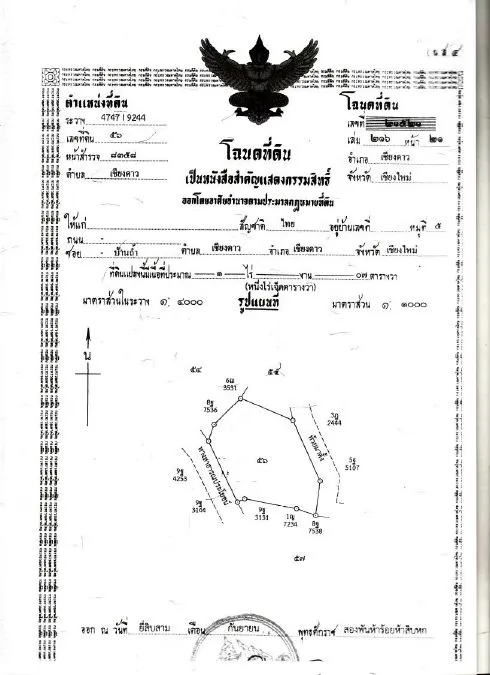 (น.ส.๔
ตำแหน่งที่ดิน
ระวาง 4747 I 9244
เลขที่ดิน ๕๖
หน้าสำรวจ ๘๓๕๘
ตำบล เชียงดาว
โฉนดที่ดิน
เลขที่
เล่ม ๒๑๖ หน้า ๒๑
อำเภอ เชียงดาว
จังหวัด เชียงใหม่
โฉนดที่ดิน
เป็นหนังสือสำคัญแสดงกรรมสิทธิ์
ออกโดยอาศัยอำนาจตามประมวลกฎหมายที่ดิน
ให้แก่ สัญชาติ ไทย อยู่บ้านเลขที่ หมู่ที่ ๕
ถนน -
ซอย - บ้านถ้ำ ตำบล เชียงดาว อำเภอ เชียงดาว จังหวัด เชียงใหม่
ที่ดินแปลงนี้มีเนื้อที่ประมาณ ๑ ไร่ งาน ๐๗ ตารางวา
(หนึ่งไร่เจ็ดตารางวา)
มาตราส่วนในระวาง ๑: ๔๐๐๐
รูปแผนที่
มาตราส่วน ๑: ๑๐๐๐
น
๕๔
๕๕
3531
7536
2444
5107
๕๖
ทางสาธารณประโยชน์
4253
3144
3131
7234
7538
๕๗
ออก ณ วันที่ ยี่สิบสาม เดือน กันยายน พุทธศักราช สองพันห้าร้อยห้าสิบหก